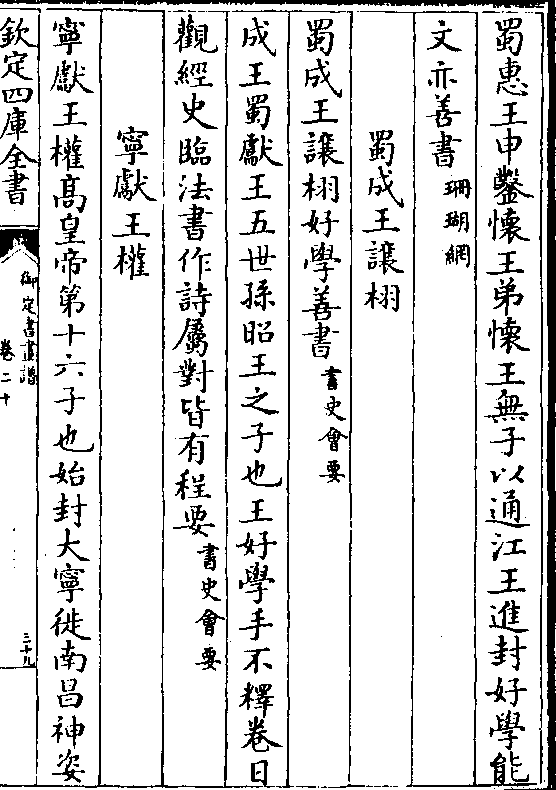 蜀惠王申鑿懷王弟懷王無子以通江王進封好學能
文亦善書珊瑚網
蜀成王讓栩
蜀成王讓栩好學善書書史會要
成王蜀獻王五世孫昭王之子也王好學手不釋卷日
觀經史臨法書作詩屬對皆有程要書史會要
寧獻王權
寧獻王權髙皇帝第十六子也始封大寧徙南昌神姿
欽定四庫全書
御定書畫譜
卷二十
三十九